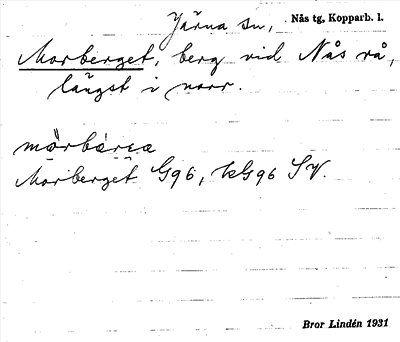 Järna sn, Nås tg, Kopparb. l.
Morberget, berg vid Nås rå,
längst i norr.
Morberget G96, kG96 SV.
Bror Lindén 1931